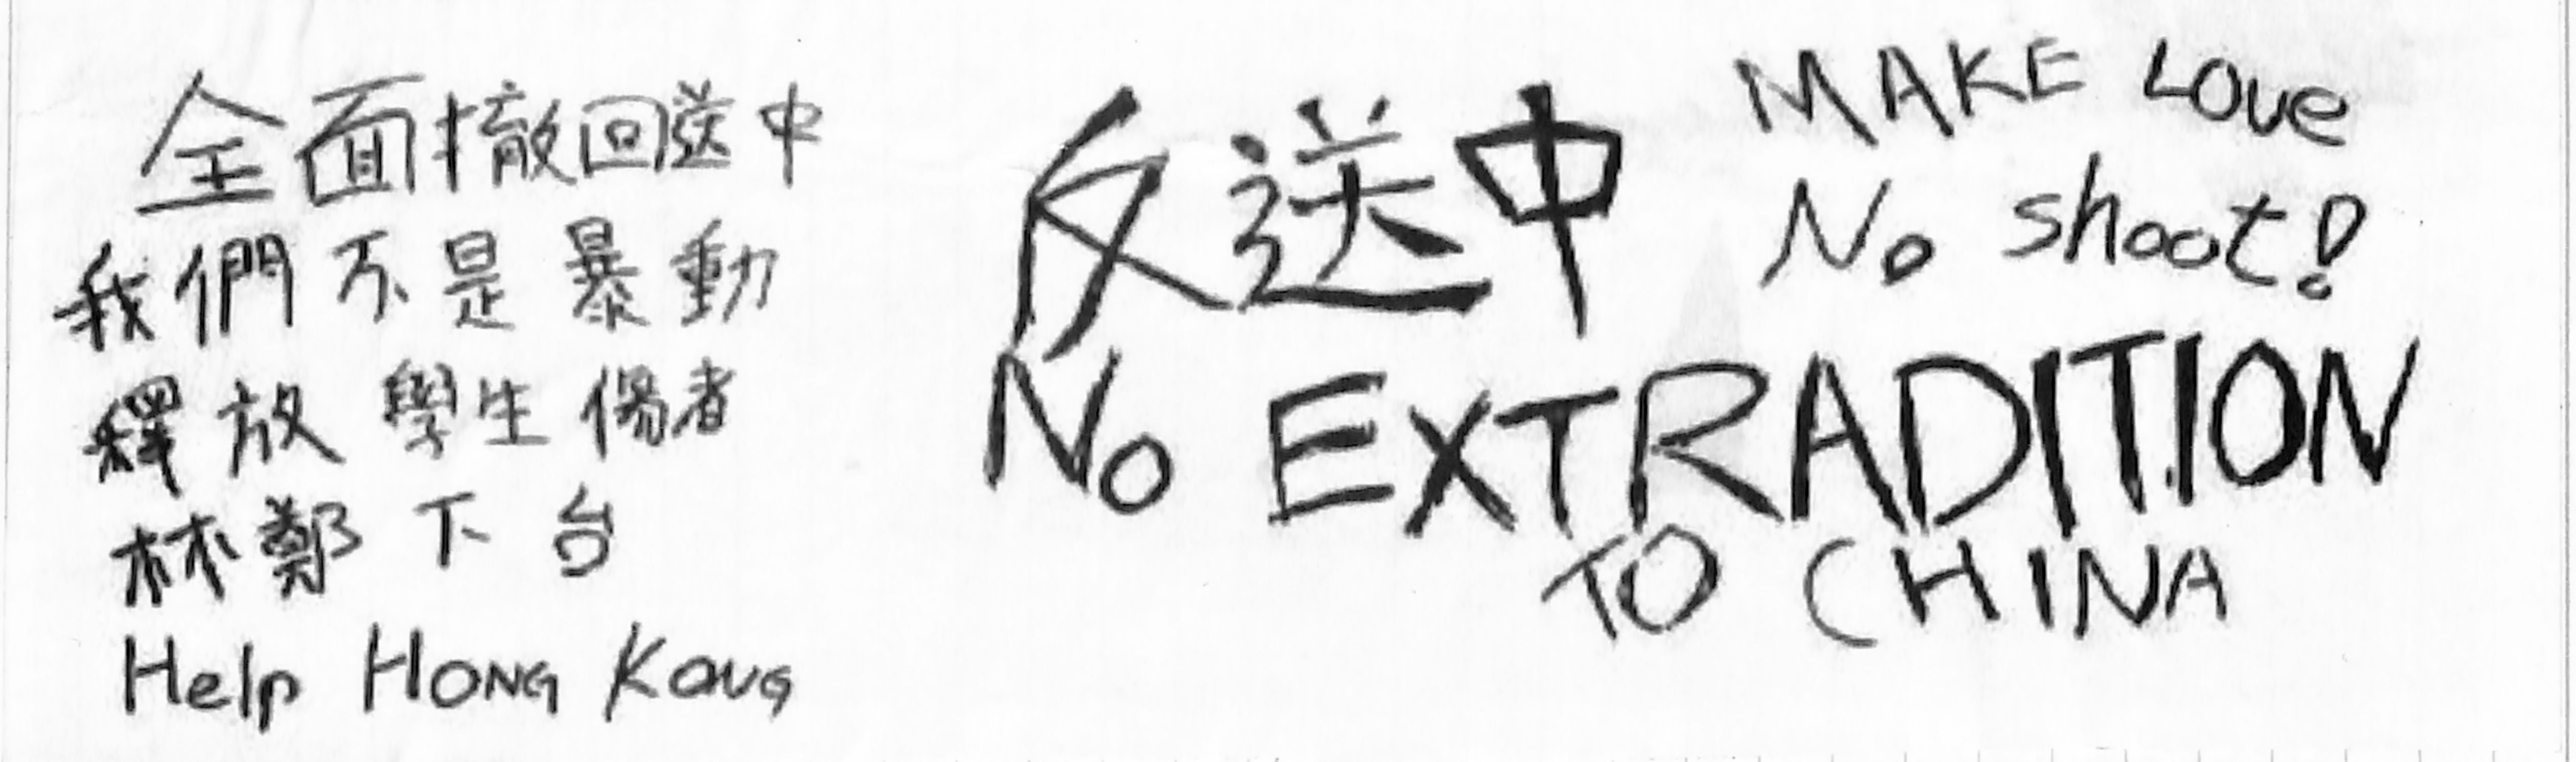 全面撤回送中
我們不是暴動
釋放學生傷者
林鄭下台
Help HONG KONG
反送中
MAKE Love
No shoot!
No EXTRADITION
TO CHINA